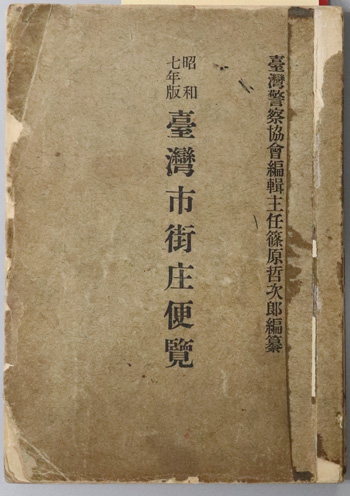 臺灣警察協會編輯主任篠原哲次郎編纂
昭和七年版
臺灣市街庄便覽